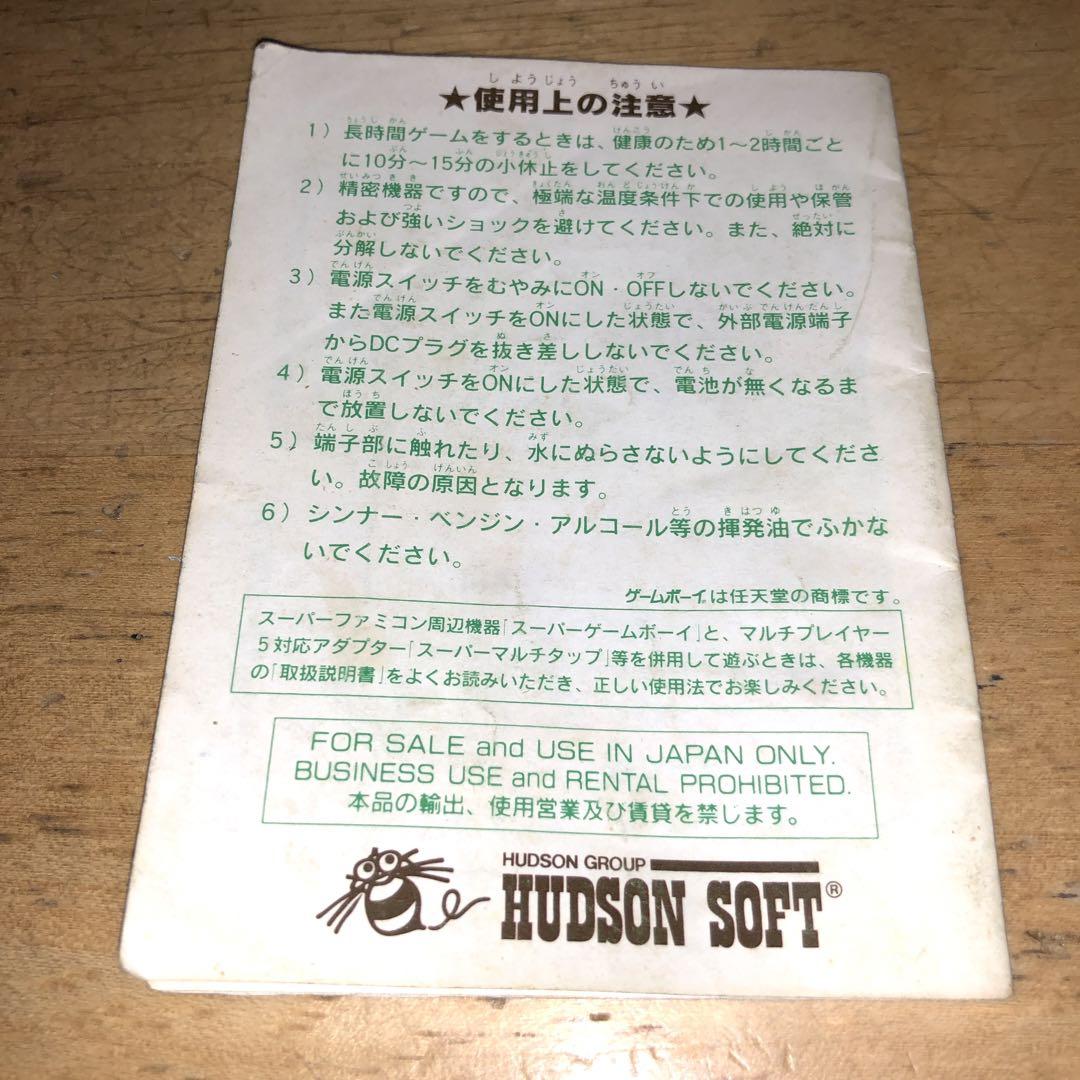 ★使用上の注意★
1）長時間ゲームをするときは、健康のため1～2時間ごと
に10分～15分の小休止をしてください。
2）精密機器ですので、極端な温度条件下での使用や保管
および強いショックを避けてください。また、絶対に
分解しないでください。
3）電源スイッチをむやみにON・OFFしないでください。
また電源スイッチをONにした状態で、外部電源端子
からDCプラグを抜き差ししないでください。
4）電源スイッチをONにした状態で、電池が無くなるま
で放置しないでください。
5）端子部に触れたり、水にぬらさないようにしてくださ
い。故障の原因となります。
6）シンナー・ベンジン・アルコール等の揮発油でふかな
いでください。
ゲームボーイは任天堂の商標です。
スーパーファミコン周辺機器「スーパーゲームボーイ」と、マルチプレイヤー
5対応アダプター「スーパーマルチタップ」等を併用して遊ぶときは、各機器
の「取扱説明書」をよくお読みいただき、正しい使用法でお楽しみください。
FOR SALE and USE IN JAPAN ONLY.
BUSINESS USE and RENTAL PROHIBITED.
本品の輸出、使用営業及び賃貸を禁じます。
HUDSON GROUP
HUDSON SOFT®